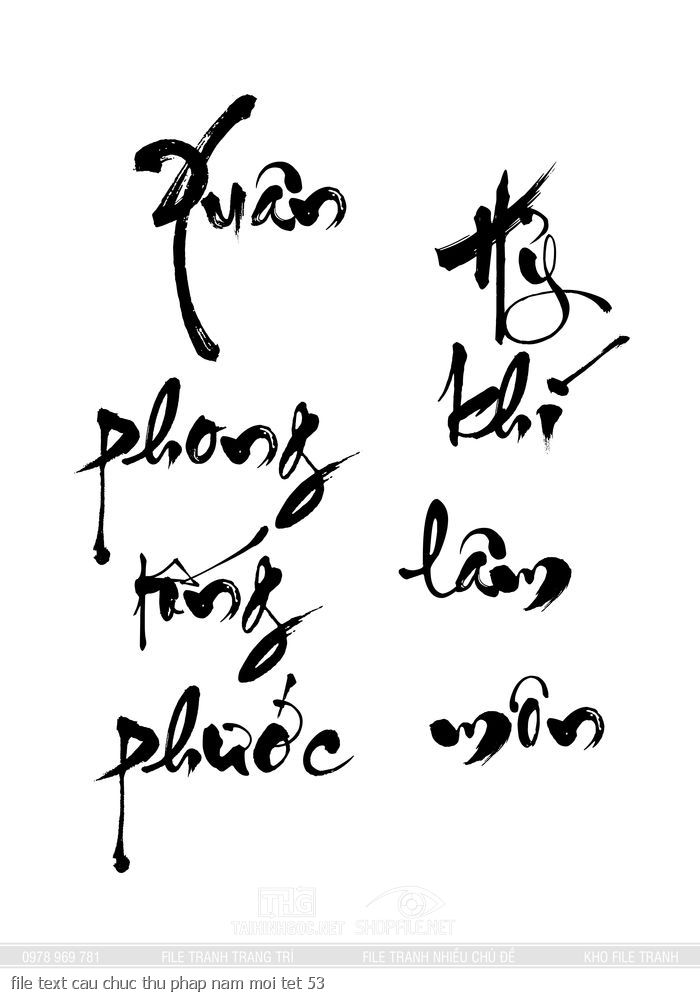 Xuân
phong
tống
phước
Hỷ
khí
lâm
môn
THG
TAIHINHGOC.NET SHOPFILE.NET
0978 969 781 FILE TRANH TRANG TRÍ FILE TRANH NHIỀU CHỦ ĐỀ KHO FILE TRANH
file text cau chuc thu phap nam moi tet 53